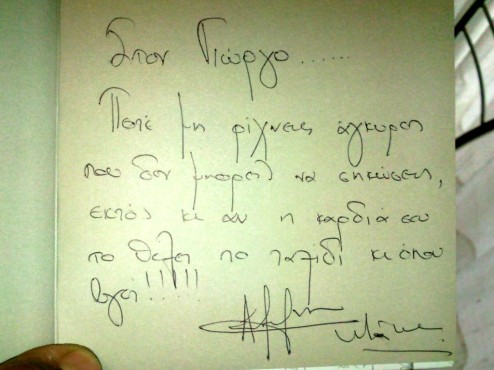 Στον Γιώργο......
Ποτέ μη ρίχνεις άγκυρες
που δεν μπορείς να σηκώσεις,
εκτός κι αν η καρδιά σου
το θέλει το ταξίδι κι όπου
βγει!!!!!!